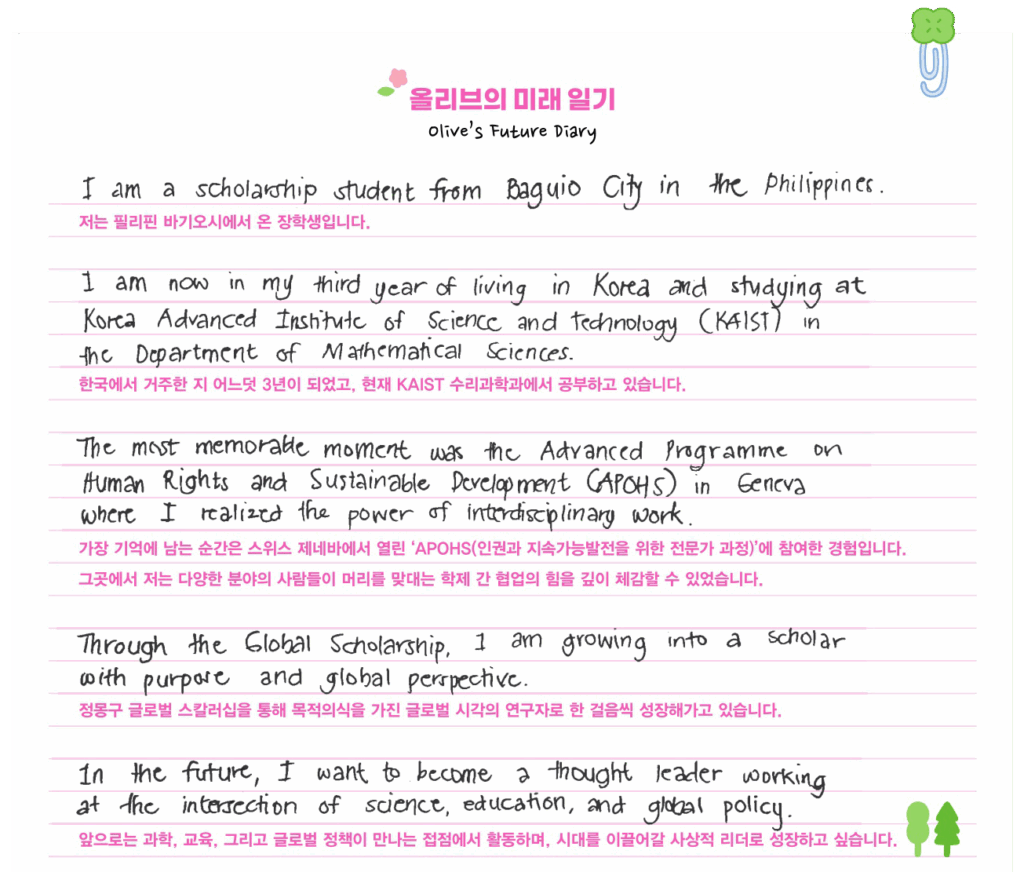 올리브의 미래 일기
Olive's Future Diary
I am a scholarship student from Baguio City in the Philippines.
저는 필리핀 바기오시에서 온 장학생입니다.
I am now in my third year of living in Korea and studying at
Korea Advanced Institute of Science and Technology (KAIST) in
the Department of Mathematical Sciences.
한국에서 거주한 지 어느덧 3년이 되었고, 현재 KAIST 수리과학과에서 공부하고 있습니다.
The most memorable moment was the Advanced Programme on
Human Rights and Sustainable Development (APOHS) in Geneva
where I realized the power of interdisciplinary work.
가장 기억에 남는 순간은 스위스 제네바에서 열린 'APOHS(인권과 지속가능발전을 위한 전문가 과정)'에 참여한 경험입니다.
그곳에서 저는 다양한 분야의 사람들이 머리를 맞대는 학제 간 협업의 힘을 깊이 체감할 수 있었습니다.
Through the Global Scholarship, I am growing into a scholar
with purpose and global perspective.
정몽구 글로벌 스칼러십을 통해 목적의식을 가진 글로벌 시각의 연구자로 한 걸음씩 성장해가고 있습니다.
In the future, I want to become a thought leader working
at the intersection of science, education, and global policy.
앞으로는 과학, 교육, 그리고 글로벌 정책이 만나는 접점에서 활동하며, 시대를 이끌어갈 사상적 리더로 성장하고 싶습니다.